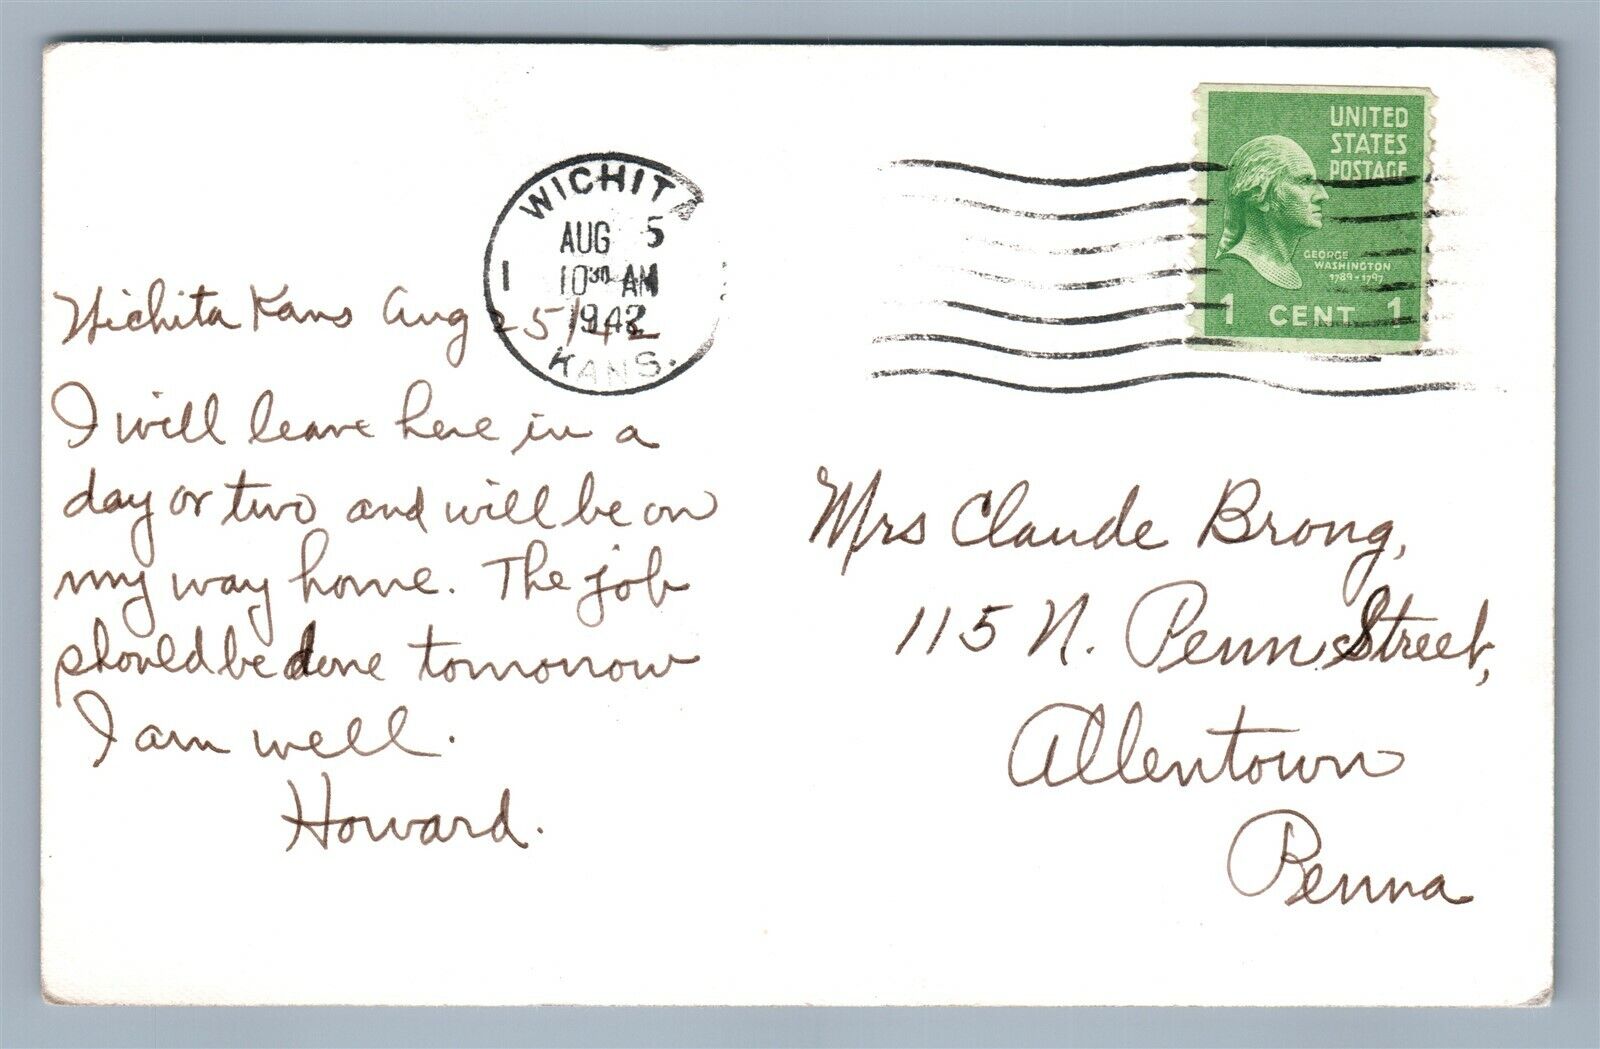 WICHITA
AUG 5
10 30 AM
1942
KANS.
1
UNITED
STATES
POSTAGE
GEORGE
WASHINGTON
1789-1797
1 CENT 1
Wichita Kans Aug 5/42
I will leave here in a
day or two and will be on
my way home. The job
should be done tomorrow
I am well.
Howard.
Mrs Claude Brong,
115 N. Penn Street,
Allentown
Penna